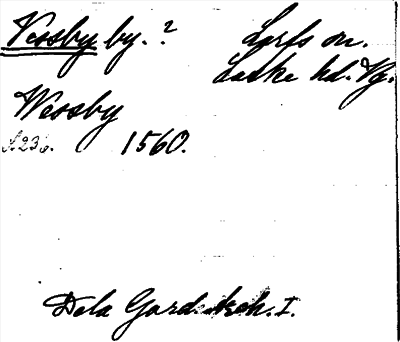 Vessby by. ?
Lerfs sn.
Laske hd. Vg.
Wessby
s. 236. 1560.
Dela Gard. kch. I.